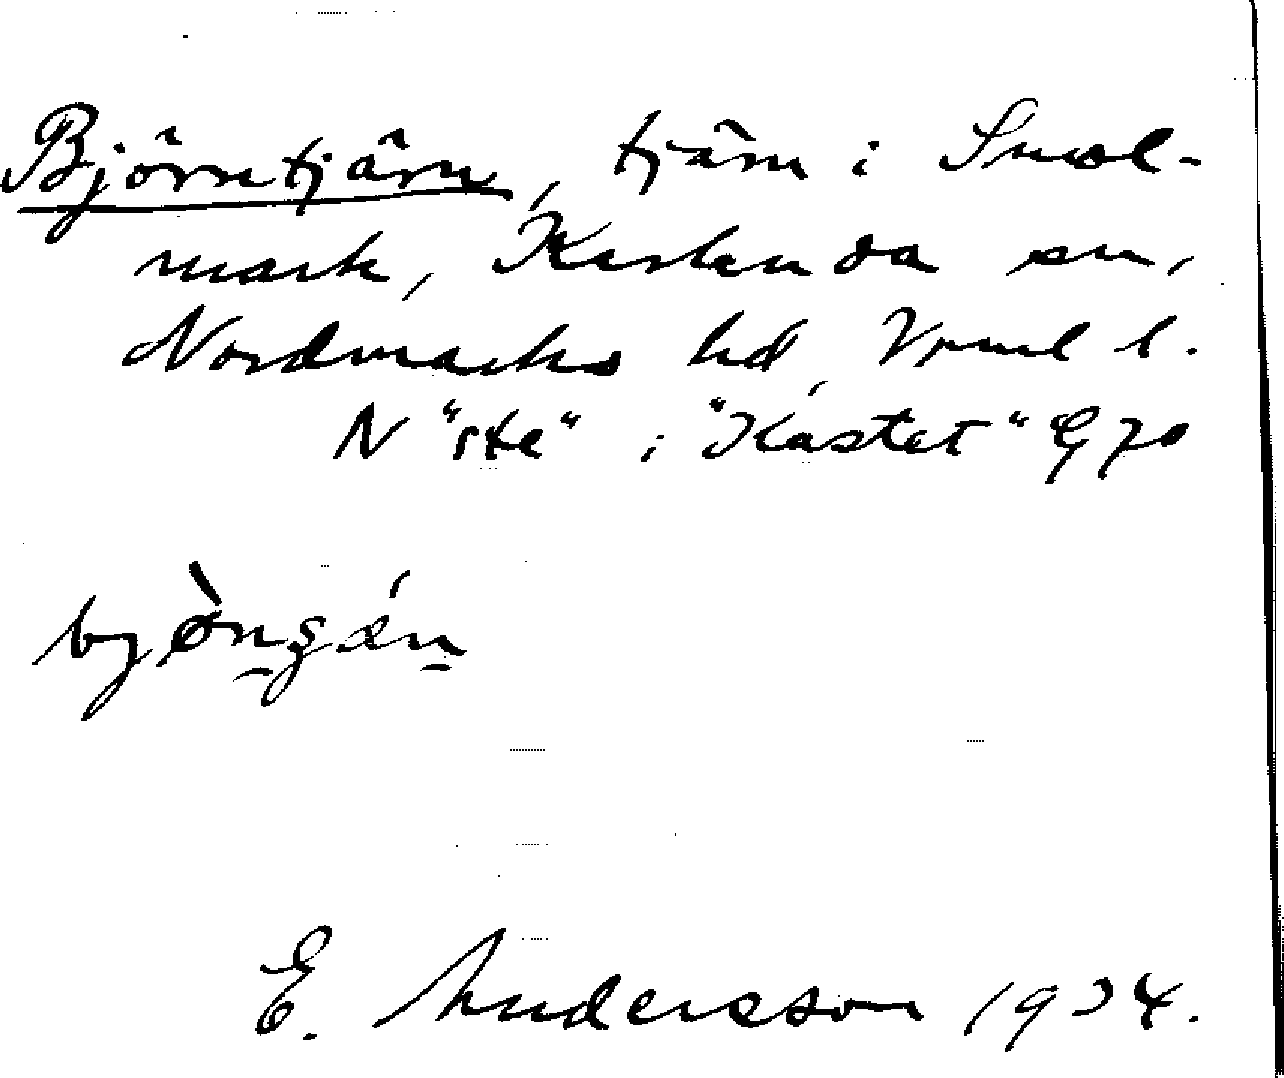 Björntjärn, tjärn i Smol-
mark, Karlanda sn,
Nordmarks hd, Vrml l.
N "rke" i "Kastet" G 70
E. Andersson 1934.